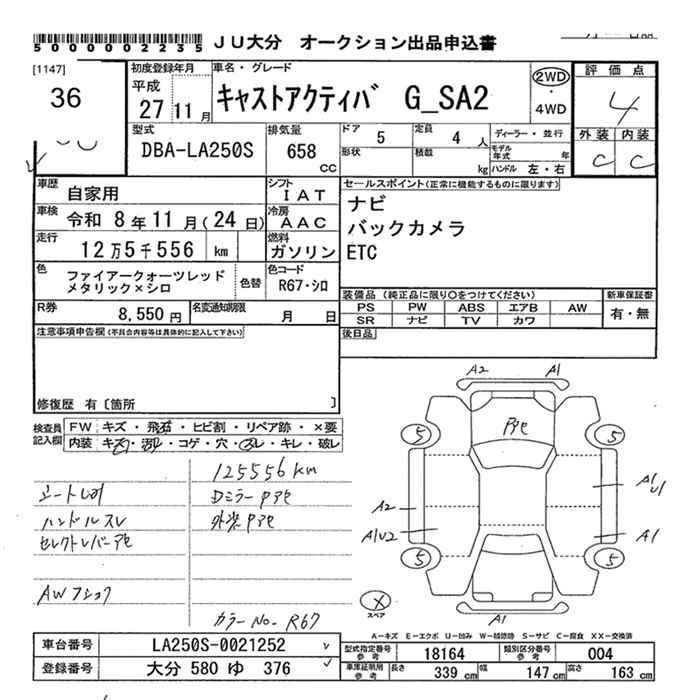 5000002235 JU大分 オークション出品申込書
[1147]
36
初度登録年月
平成
27 11 月
車名・グレード
キャストアクティバ G_SA2
2WD
・
4WD
評価点
4
外装 内装
C C
型式
DBA-LA250S
排気量
658
cc
ドア 5
定員 4 人
ディーラー・並行
形状
積載 kg
モデル年式 年
ハンドル 左・右
車歴 自家用
シフト IAT
車検 令和 8 年 11 月 (24 日)
冷房 AAC
走行 12 万 5 千 556 km
燃料 ガソリン
色 ファイアークォーツレッド
メタリック×シロ
色替
色コード
R67・シロ
セールスポイント(正常に機能するものに限ります)
ナビ
バックカメラ
ETC
R券 8,550 円
名変通知期限 月 日
装備品 (純正品に限り○をつけてください)
PS PW ABS エアB AW
SR ナビ TV カワ
新車保証書
有・無
後日品
注意事項申告欄(不具合内容等は具体的に記入して下さい)
修復歴 有〔箇所 〕
検査員
記入欄
FW キズ・飛石・ヒビ割・リペア跡・×要
内装 キズ・汚れ・コゲ・穴・スレ・キレ・破レ
125556km
シートしわ
Dミラーアセ
ハンドルスレ
外装アセ
セレクトレバーアセ
AWフショク
カラーNo-R67
A2 A1
アセ
5 5
A2
A1U2
A1
U1
A1
5 5
A1
X
スペア
A-キズ E-エクボ U-凹み W-補修跡 S-サビ C-腐食 XX-交換済
車台番号 LA250S-0021252
登録番号 大分 580 ゆ 376
型式指定番号
参考
18164
類別区分番号
参考
004
車庫証明用
参考
長さ 339 cm 幅 147 cm 高さ 163 cm